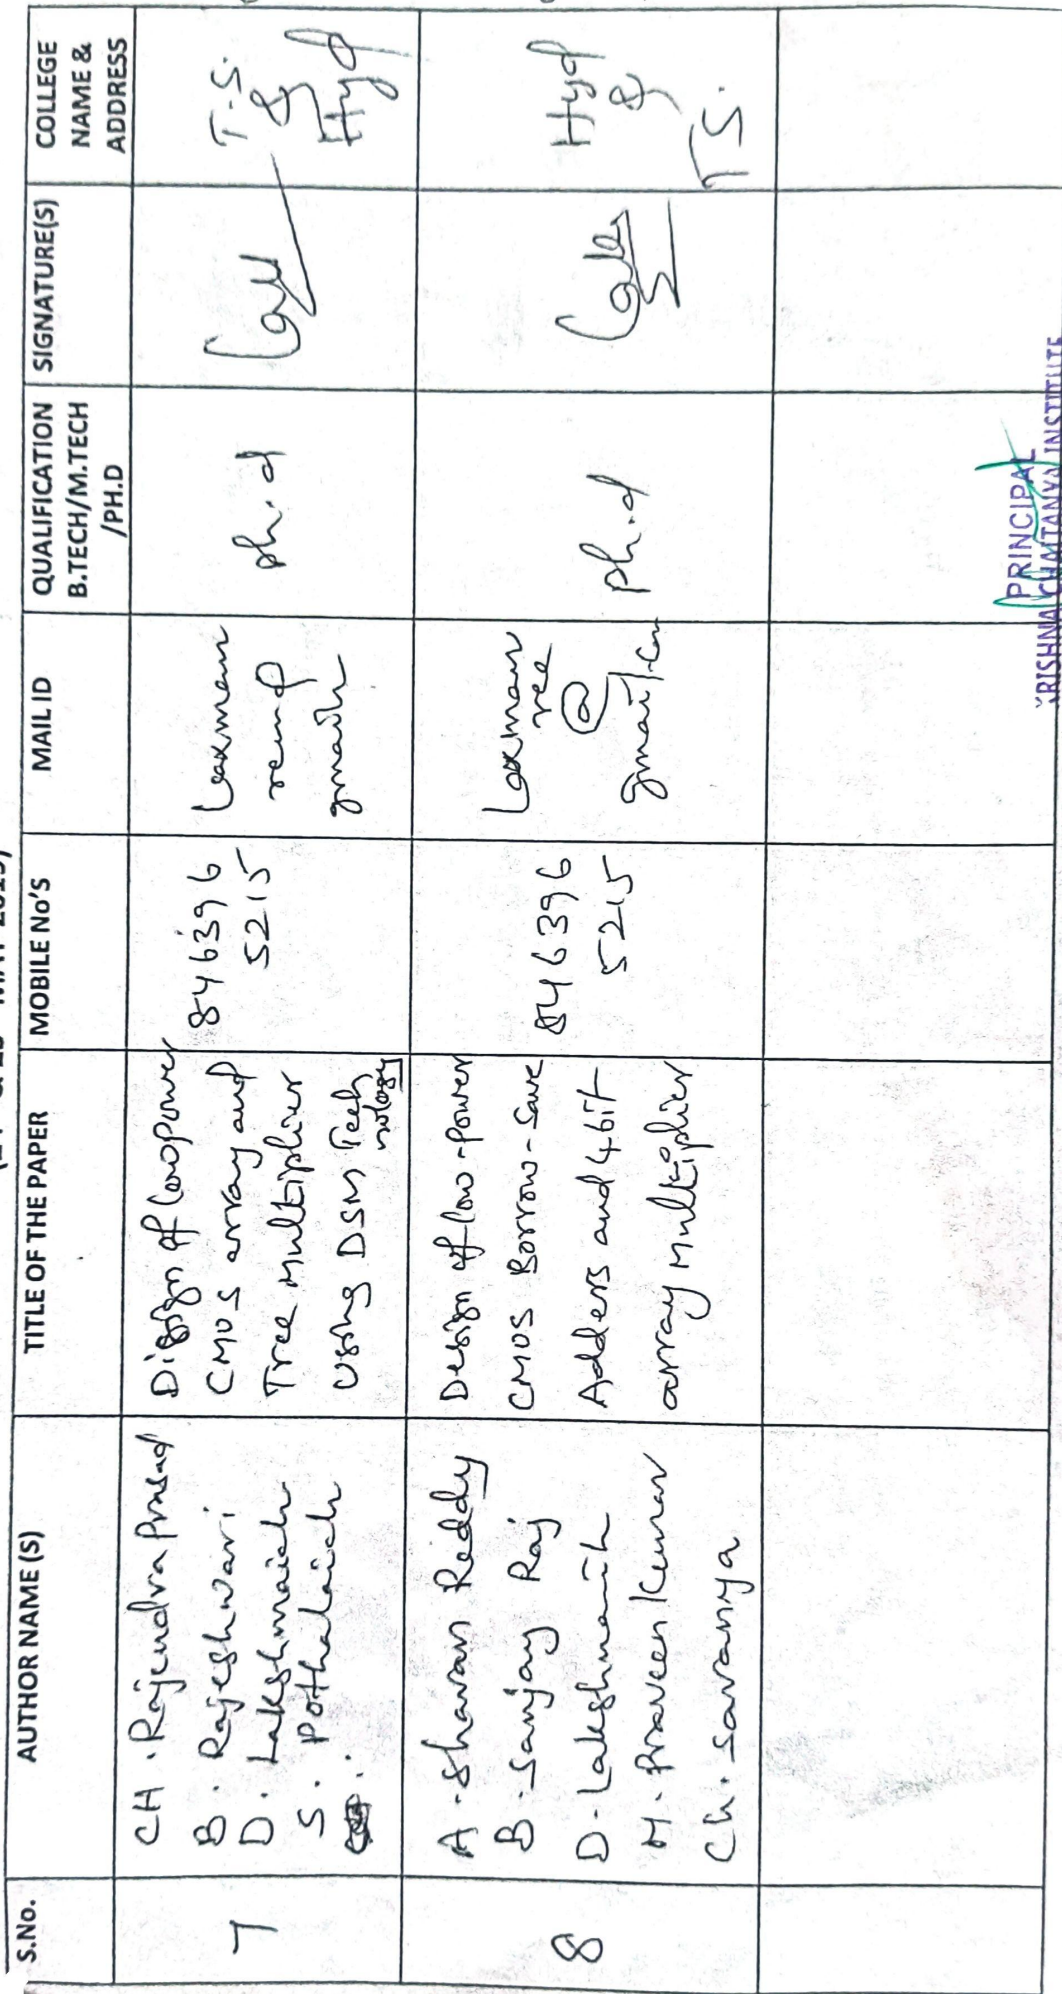 S.No.
AUTHOR NAME (S)
TITLE OF THE PAPER
MOBILE No'S
MAIL ID
QUALIFICATION
B.TECH/M.TECH
/PH.D
SIGNATURE(S)
COLLEGE
NAME &
ADDRESS
7
CH. Rajendra Prasad
B. Rajeshwari
D. Lakshmaiah
S. Pothalaiah
Disign of lowpower
CMOS array and
Tree Multiplier
Using DSM Tech
nology
846396
5215
Laxman
gmail
ph.d
T.S.
&
Hyd
8
A. Shavan Reddy
B. Sanjay Raj
D. Lakshmaiah
M. Praveen Kumar
Ch. Savanya
Design of low-power
CMOS Borrow-Save
Adders and 4bit
array Multiplier
846396
5215
Laxman
ree
@
gmail.com
ph.d
Hyd
&
TS.
PRINCIPAL
KRISHNA CHAITANYA INSTITUTE